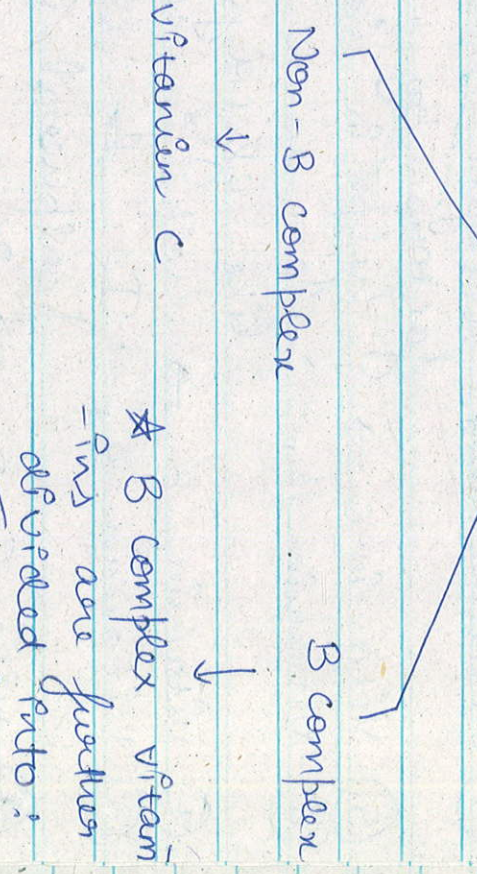 Non-B complex
B complex
↓
↓
vitamin C
* B complex vitam
-ins are further
divided into: